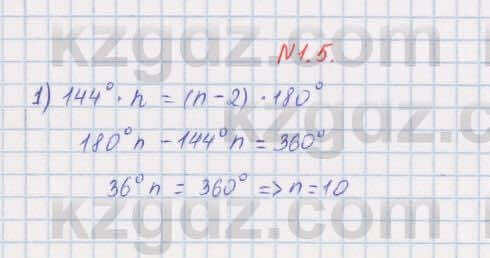 kzgdz.com
N1.5.
1) 144° · n = (n-2) · 180°
180°n - 144°n = 360°
kzgdz.com
36°n = 360° => n = 10
kzgdz.com